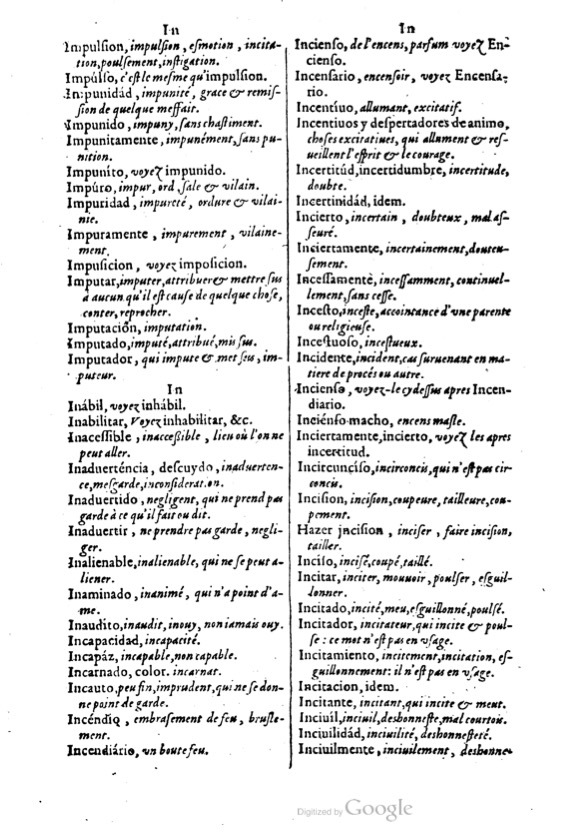 In
Impulsion, impulsion, esmotion, incita-
tion, poulsement, instigation.
Impúlso, c'est le mesme qu'impulsion.
Impunidád, impunité, grace & remis-
sion de quelque meffait.
Impunido, impuny, sans chastiment.
Impunitamente, impunément, sans pu-
nition.
Impuníto, voyez impunido.
Impúro, impur, ord, sale & vilain.
Impuridad, impureté, ordure & vilai-
nie.
Impuramente, impurement, vilaine-
ment.
Impusicion, voyez imposicion.
Imputar, imputer, attribuer & mettre sus
à aucun qu'il est cause de quelque chose,
conter, reprocher.
Imputación, imputation.
Imputado, imputé, attribué, mis sus.
Imputador, qui impute & met seu, im-
puteur.
In
Inábil, voyez inhábil.
Inabilitar, Voyez inhabilitar, &c.
Inacessible, inaccessible, lieu où l'on ne
peut aller.
Inaduerténcia, descuydo, inaduerten-
ce, mesgarde, inconsideration.
Inaduertido, negligent, qui ne prend pas
garde à ce qu'il fait ou dit.
Inaduertir, ne prendre pas garde, negli-
ger.
Inalienable, inalienable, qui ne se peut a-
liener.
Inaminado, inanimé, qui n'a point d'a-
me.
Inaudíto, inaudit, inouy, non iamais ouy.
Incapacidad, incapacité.
Incapáz, incapable, non capable.
Incarnado, color. incarnat.
Incauto, peu fin, imprudent, qui ne se don-
ne point de garde.
Incéndio, embrasement de feu, brusle-
ment.
Incendiário, un boutefeu.
In
Incienso, de l'encens, parfum voyez En-
cienso.
Incensario, encensoir, voyez Encensa-
rio.
Incentíuo, allumant, excitatif.
Incentiuos y despertadores de animo,
choses excitatiues, qui allument & res-
ueillent l'esprit & le courage.
Incertitúd, incertidumbre, incertitude,
doubte.
Incertinidád, idem.
Incierto, incertain, doubteux, mal as-
seuré.
Inciertamente, incertainement, douteu-
sement.
Incessamente, incessamment, continuel-
lement, sans cesse.
Incesto, inceste, accointance d'vne parente
ou religieuse.
Incestuoso, incestueux.
Incidente, incident, cas suruenant en ma-
tiere de procés ou autre.
Incienso, voyez-le cy dessus apres Incen-
diario.
Inciénso macho, encens masle.
Inciertamente, incierto, voyez les apres
incertitud.
Incircunciso, incirconcis, qui n'est pas cir-
concis.
Incision, incision, coupeure, tailleure, cou-
pement.
Hazer jncision, inciser, faire incision,
tailler.
Inciso, incisé, coupé, taillé.
Incitar, inciter, mouuoir, poulser, esguil-
lonner.
Incitado, incité, meu, esguillonné, poulsé.
Incitador, incitateur, qui incite & poul-
se : ce mot n'est pas en vsage.
Incitamiento, incitement, incitation, es-
guillonnement: il n'est pas en vsage.
Incitacion, idem.
Incitante, incitant, qui incite & meut.
Inciuil, inciuil, deshonneste, mal courtois.
Inciuilidád, inciuilité, deshonnesteté.
Inciuilmente, inciuilement, deshonne-
Digitized by Google